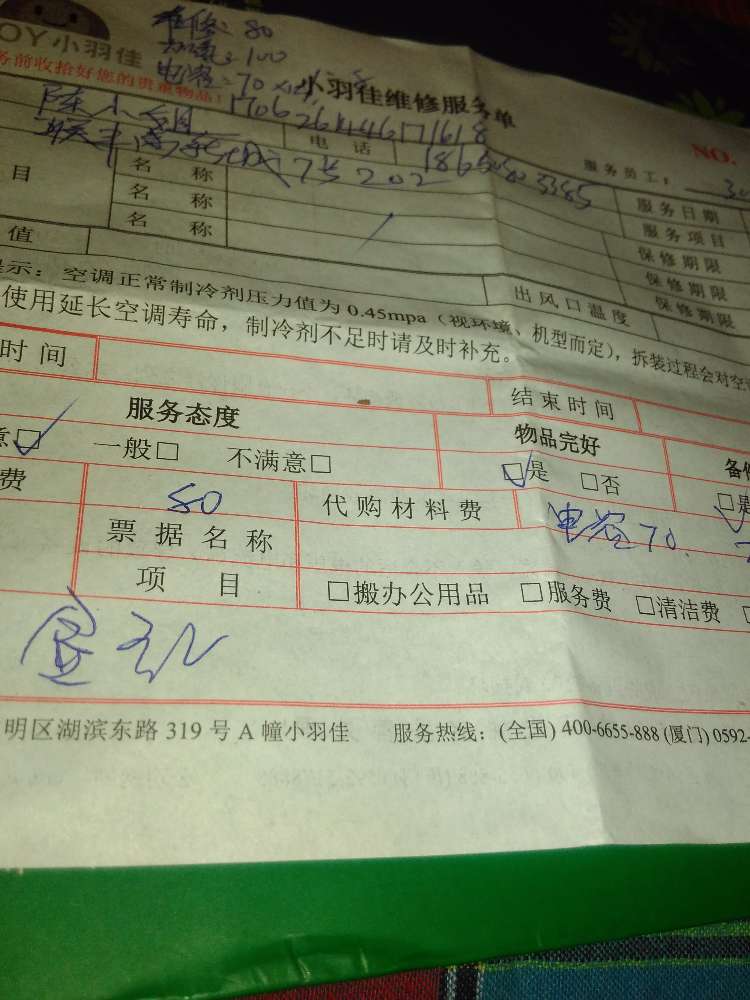 维修: 80
加氟: 100
电容: 70
OY小羽佳
小羽佳维修服务单
务前收拾好您的贵重物品!
NO.
陈小姐
电话
服务员工:
7号202
服务日期
目
名称
服务项目
名称
保修期限
名称
保修期限
值
出风口温度
保修期限
示: 空调正常制冷剂压力值为 0.45mpa (视环境、机型而定), 拆装过程会对空
使用延长空调寿命, 制冷剂不足时请及时补充。
时间
结束时间
服务态度
物品完好
意□ 一般□ 不满意□
□是 □否
费
80
代购材料费
电容70.
票据名称
项目
□搬办公用品 □服务费 □清洁费
明区湖滨东路 319 号 A 幢小羽佳 服务热线: (全国) 400-6655-888 (厦门) 0592-